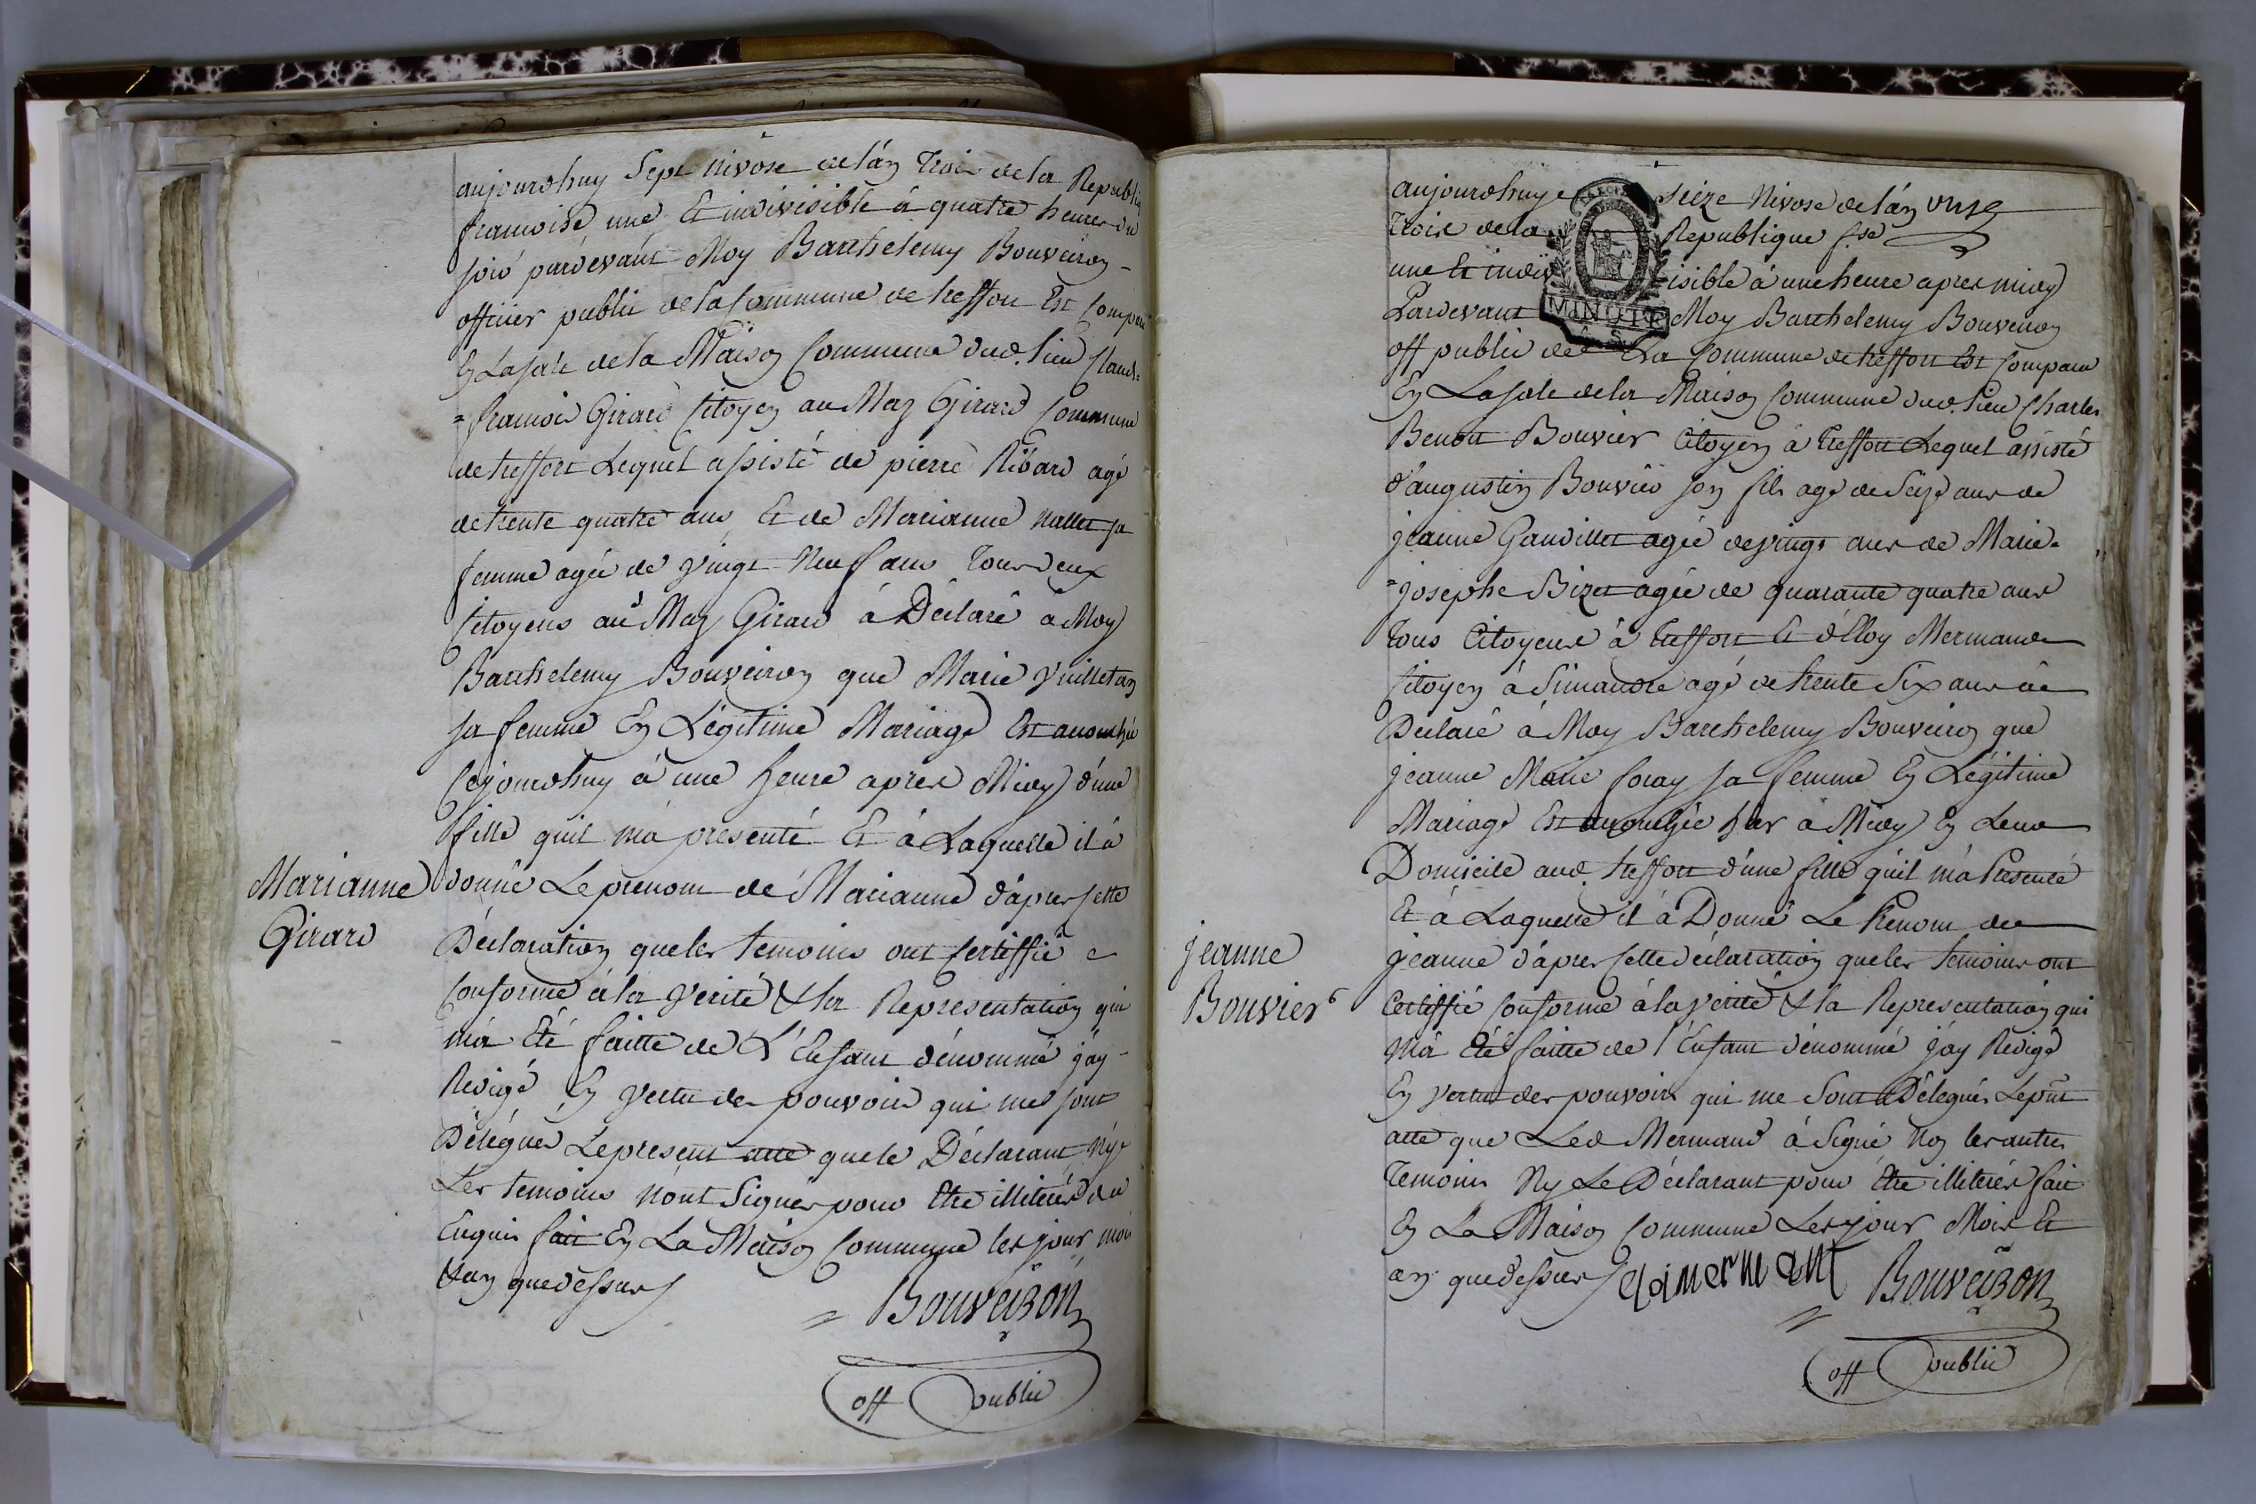 aujourdhuy Sept Nivose de lán Trois de la Republiq
francoise une Et indivisible à quatre heures du
soir pardevant Moy Barthelemy Bouveiron
officier public de la Commune de treffort Est Comparu
En La sale de la Maison Commune dud. lieu Claud=
=francois Girard Citoyen au Maz Girard Commune
de treffort Lequel assisté de pierre Ribard agé
de trente quatre ans Et de Marianne Nallet sa
femme agée de vingt Neuf ans Tous deux
Citoyens au Maz Girard à Déclaré à Moy
Barthelemy Bouveiron que Marie Vuilletan
sa femme En Légitime Mariage Est accouchée
Cejourdhuy à une heure apres Midy d'une
fille quil m'a presenté Et à Laquelle il à
Marianne
Girard
donné Le prenom de Marianne d'apres Cette
Déclaration que les temoins ont Certiffié
Conforme à la verité & la Representation qui
m'à Eté faitte de L'Enfant dénommé j'ay
Redigé En vertu des pouvoirs qui me sont
Délégués Le present acte que le Déclarant Ny
Les temoins N'ont Signés pour Etre illiterés de
Enquis fait En La Maison Commune les jour mois
& an que dessus
Bouveiron
off public
aujourdhuye Seize Nivose de lán
Trois de la Republique fse
une Et indivisible à une heure apres midy
MINUTE
Pardevant Moy Barthelemy Bouveiron
off public de La Commune de treffort Est Comparu
En La sale de la Maison Commune dud. lieu Charles
Benoit Bouvier Citoyen à Treffort Lequel assisté
d'augustin Bouvier son fils agé de Seize ans de
jeanne Gauvillet agée de vingt ans de Marie=
=josephe Bizet agée de quarante quatre ans
Tous Citoyens à treffort Et d'Eloy Mermand
Citoyen à Simandre agé de trente Six ans à
Déclaré à Moy Barthelemy Bouveiron que
jeanne Marie foray sa femme En Légitime
Mariage Est accouchée hier à Midy En Leur
Domicile aud. treffort d'une fille qu'il m'à Presenté
Et à Laquelle il à Donné Le Prenom de
jeanne
Bouvier
jeanne d'apres Cette déclaration que les temoins ont
Certiffié Conforme à la verité & la Representation qui
m'à Eté faitte de l'Enfant dénommé j'ay Redigé
En vertu des pouvoirs qui me Sont Délegués Le pnt
acte que Led Mermand à Signé Non les autres
Temoins Ny Le Déclarant pour Etre illiterés fait
En La Maison Commune Les jour Mois Et
an que dessus
Bouveiron
off public